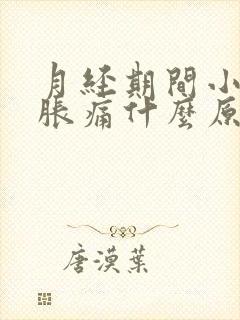 月经期間小
脹痛什麼原
唐漠葉